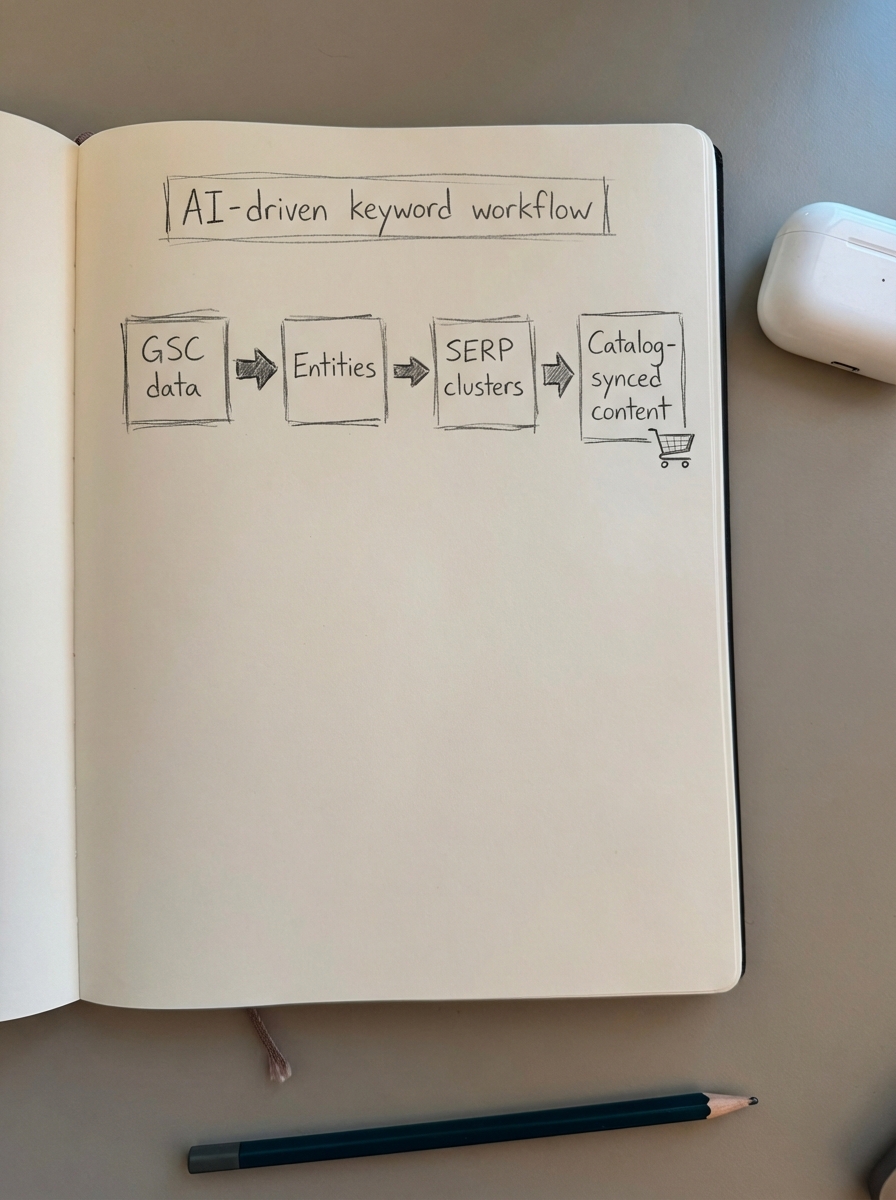 AI-driven keyword workflow
GSC
data
Entities
SERP
clusters
Catalog-
synced
content